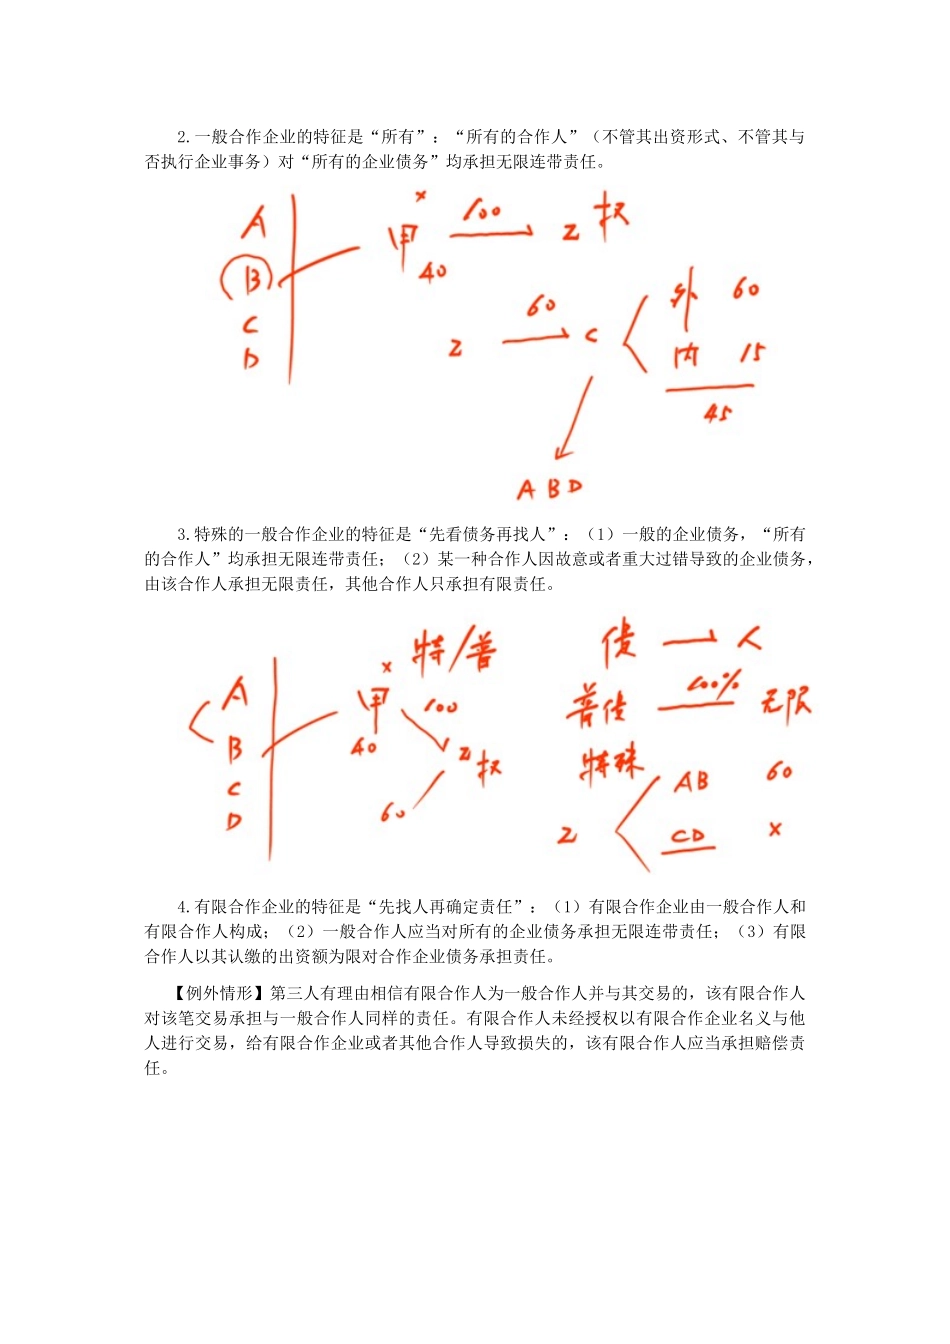 2.一般合作企业的特征是“所有”：“所有的合作人”（不管其出资形式、不管其与
否执行企业事务）对“所有的企业债务”均承担无限连带责任。
A
B
C
D
甲 ×
40
100
Z 权
Z
60
C
外 60
内 15
45
A B D
3.特殊的一般合作企业的特征是“先看债务再找人”：（1）一般的企业债务，“所有
的合作人”均承担无限连带责任；（2）某一种合作人因故意或者重大过错导致的企业债务，
由该合作人承担无限责任，其他合作人只承担有限责任。
A
B
C
D
甲 ×
40
特/普
100
Z 权
60
债 人
普债 100% 无限
特殊
Z
AB 60
CD ×
4.有限合作企业的特征是“先找人再确定责任”：（1）有限合作企业由一般合作人和
有限合作人构成；（2）一般合作人应当对所有的企业债务承担无限连带责任；（3）有限
合作人以其认缴的出资额为限对合作企业债务承担责任。
【例外情形】第三人有理由相信有限合作人为一般合作人并与其交易的，该有限合作人
对该笔交易承担与一般合作人同样的责任。有限合作人未经授权以有限合作企业名义与他
人进行交易，给有限合作企业或者其他合作人导致损失的，该有限合作人应当承担赔偿责
任。